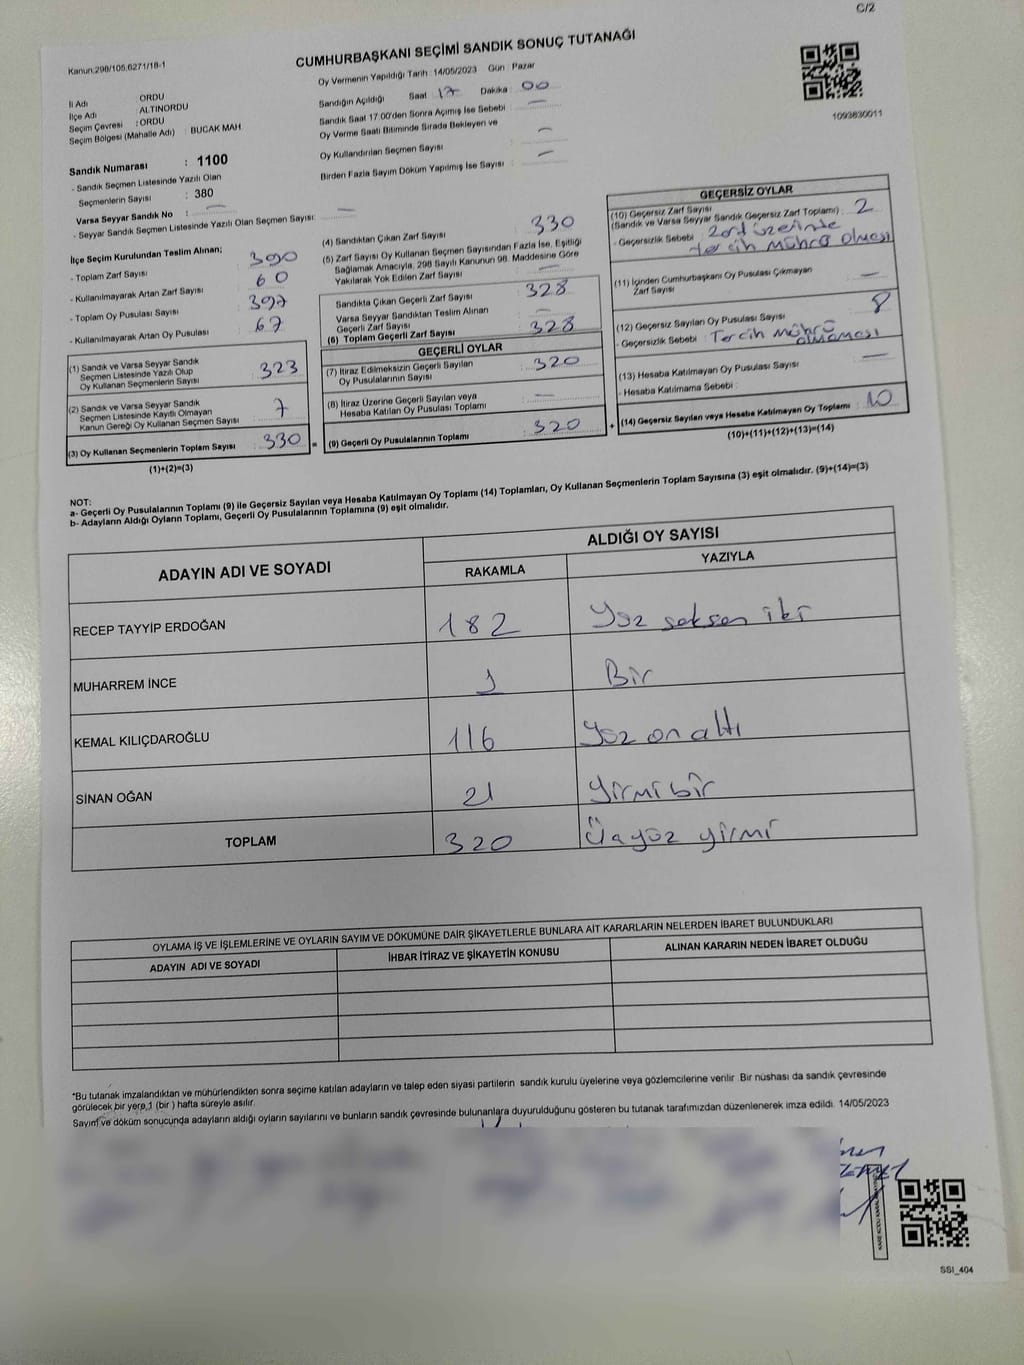 C/2
Kanun:298/105,6271/18-1
CUMHURBAŞKANI SEÇİMİ SANDIK SONUÇ TUTANAĞI
Oy Vermenin Yapıldığı Tarih : 14/05/2023 Gün : Pazar
İl Adı : ORDU
İlçe Adı : ALTINORDU
Seçim Çevresi : ORDU
Seçim Bölgesi (Mahalle Adı) : BUCAK MAH
Sandık Numarası : 1100
- Sandık Seçmen Listesinde Yazılı Olan
Seçmenlerin Sayısı : 380
Varsa Seyyar Sandık No : —
- Seyyar Sandık Seçmen Listesinde Yazılı Olan Seçmen Sayısı: —
Sandığın Açıldığı Saat 17 Dakika 00
Sandık Saat 17:00'den Sonra Açımış İse Sebebi : —
Oy Verme Saati Bitiminde Sırada Bekleyen ve
Oy Kullandırılan Seçmen Sayısı : —
Birden Fazla Sayım Döküm Yapılmış İse Sayısı : —
1093630011
İlçe Seçim Kurulundan Teslim Alınan;
- Toplam Zarf Sayısı : 390
- Kullanılmayarak Artan Zarf Sayısı : 60
- Toplam Oy Pusulası Sayısı : 397
- Kullanılmayarak Artan Oy Pusulası : 67
(1) Sandık ve Varsa Seyyar Sandık
Seçmen Listesinde Yazılı Olup
Oy Kullanan Seçmenlerin Sayısı : 323
(2) Sandık ve Varsa Seyyar Sandık
Seçmen Listesinde Kayıtlı Olmayan
Kanun Gereği Oy Kullanan Seçmen Sayısı : 7
(3) Oy Kullanan Seçmenlerin Toplam Sayısı : 330 =
(1)+(2)=(3)
(4) Sandıktan Çıkan Zarf Sayısı : 330
(5) Zarf Sayısı Oy Kullanan Seçmen Sayısından Fazla İse, Eşitliği
Sağlamak Amacıyla, 298 Sayılı Kanunun 98. Maddesine Göre
Yakılarak Yok Edilen Zarf Sayısı : —
Sandıkta Çıkan Geçerli Zarf Sayısı : 328
Varsa Seyyar Sandıktan Teslim Alınan
Geçerli Zarf Sayısı : —
(6) Toplam Geçerli Zarf Sayısı : 328
GEÇERLİ OYLAR
(7) İtiraz Edilmeksizin Geçerli Sayılan
Oy Pusulalarının Sayısı : 320
(8) İtiraz Üzerine Geçerli Sayılan veya
Hesaba Katılan Oy Pusulası Toplamı : —
(9) Geçerli Oy Pusulalarının Toplamı : 320 +
GEÇERSİZ OYLAR
(10) Geçersiz Zarf Sayısı
(Sandık ve Varsa Seyyar Sandık Geçersiz Zarf Toplamı) : 2
- Geçersizlik Sebebi : Zarf üzerinde
tercih mührü olması
(11) İçinden Cumhurbaşkanı Oy Pusulası Çıkmayan
Zarf Sayısı : —
(12) Geçersiz Sayılan Oy Pusulası Sayısı : 8
- Geçersizlik Sebebi : Tercih mührü
olmaması
(13) Hesaba Katılmayan Oy Pusulası Sayısı : —
- Hesaba Katılmama Sebebi :
(14) Geçersiz Sayılan veya Hesaba Katılmayan Oy Toplamı : 10
(10)+(11)+(12)+(13)=(14)
NOT:
a- Geçerli Oy Pusulalarının Toplamı (9) ile Geçersiz Sayılan veya Hesaba Katılmayan Oy Toplamı (14) Toplamları, Oy Kullanan Seçmenlerin Toplam Sayısına (3) eşit olmalıdır. (9)+(14)=(3)
b- Adayların Aldığı Oyların Toplamı, Geçerli Oy Pusulalarının Toplamına (9) eşit olmalıdır.
ADAYIN ADI VE SOYADI
ALDIĞI OY SAYISI
RAKAMLA YAZIYLA
RECEP TAYYİP ERDOĞAN 182 Yüz seksen iki
MUHARREM İNCE 1 Bir
KEMAL KILIÇDAROĞLU 116 Yüz on altı
SİNAN OĞAN 21 Yirmi bir
TOPLAM 320 Üçyüz yirmi
OYLAMA İŞ VE İŞLEMLERİNE VE OYLARIN SAYIM VE DÖKÜMÜNE DAİR ŞİKAYETLERLE BUNLARA AİT KARARLARIN NELERDEN İBARET BULUNDUKLARI
ADAYIN ADI VE SOYADI İHBAR İTİRAZ VE ŞİKAYETİN KONUSU ALINAN KARARIN NEDEN İBARET OLDUĞU
*Bu tutanak imzalandıktan ve mühürlendikten sonra seçime katılan adayların ve talep eden siyasi partilerin sandık kurulu üyelerine veya gözlemcilerine verilir. Bir nüshası da sandık çevresinde
görülecek bir yere 1 (bir ) hafta süreyle asılır.
Sayım ve döküm sonucunda adayların aldığı oyların sayılarını ve bunların sandık çevresinde bulunanlara duyurulduğunu gösteren bu tutanak tarafımızdan düzenlenerek imza edildi. 14/05/2023
SSI_404